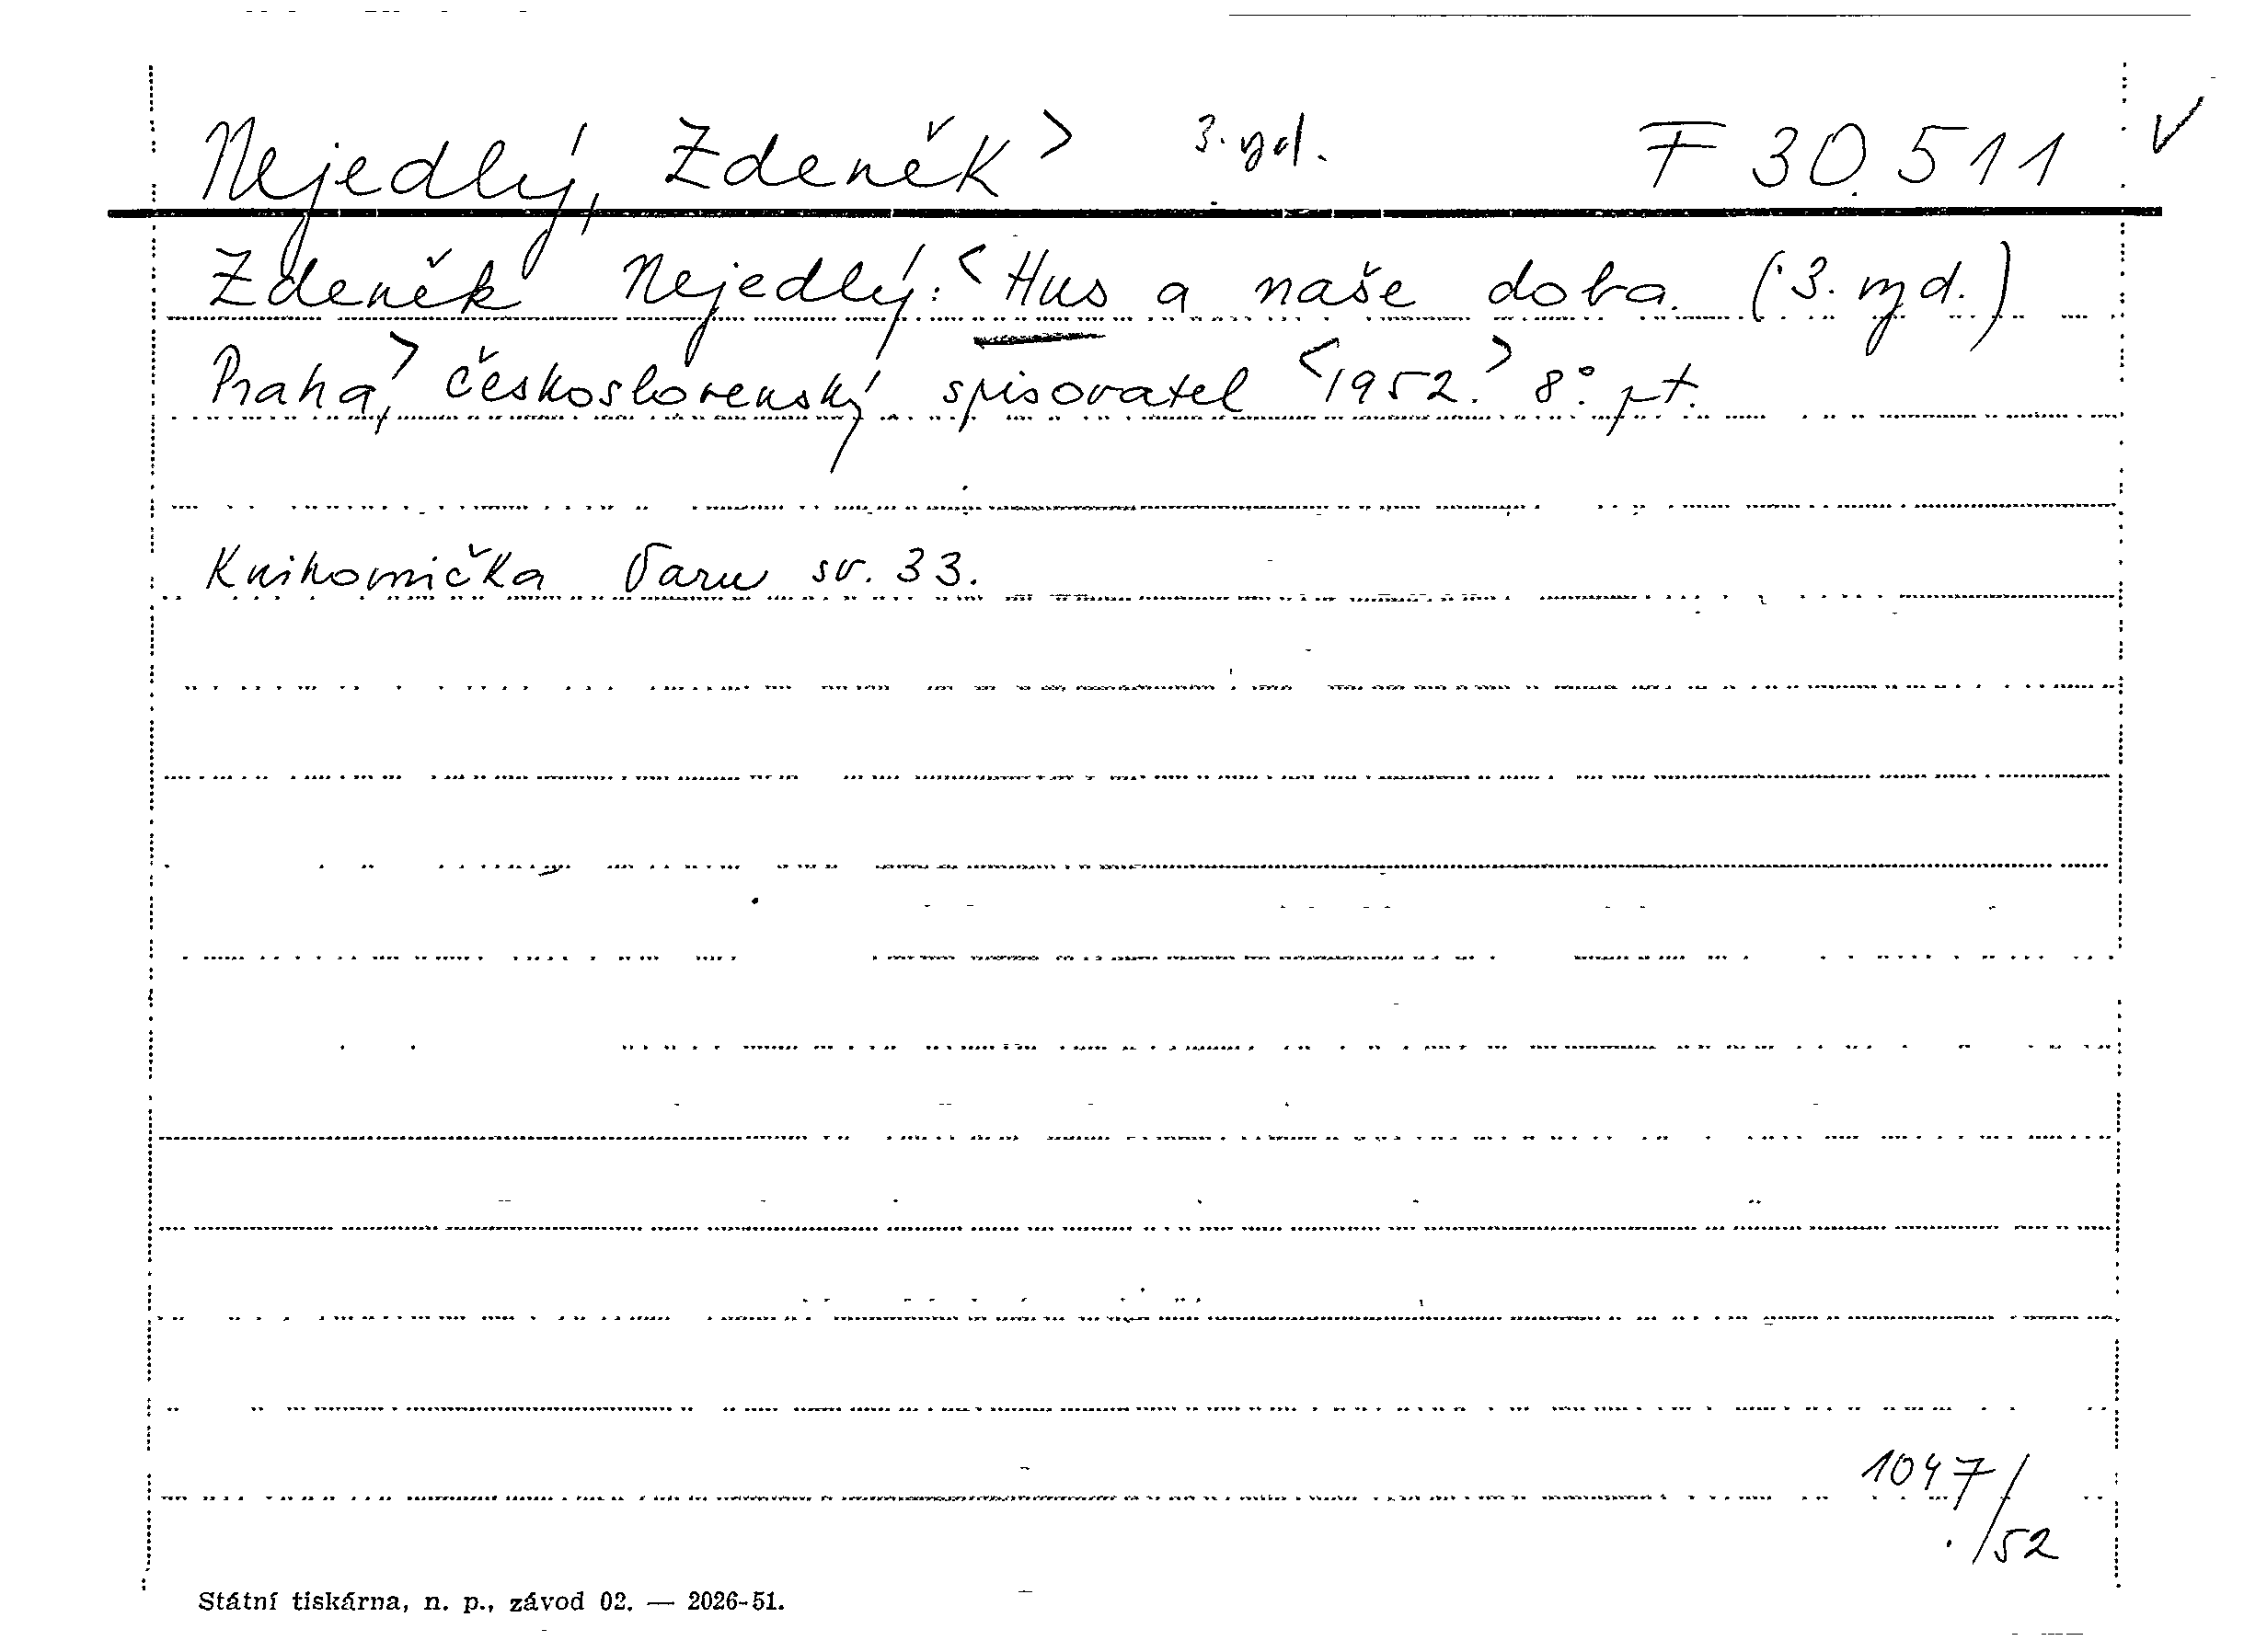 Nejedlý, Zdeněk> 3. vyd. F 30.511 ✓
Zdeněk Nejedlý: <Hus a naše doba. (3. vyd.)
Praha,> československý spisovatel <1952.> 8° pt.
Knihovnička Varu sv. 33.
1047/
/52
Státní tiskárna, n. p., závod 02. — 2026-51.